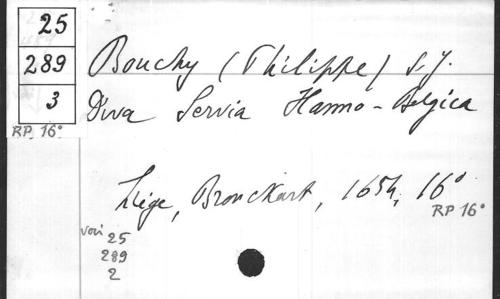 25
289
3
RP 16°
Bouchy (Philippe) S.J.
Diva Servia Hanno-Belgica
Liège, Bronckart, 1654, 16°
RP 16°
voir 25
289
2